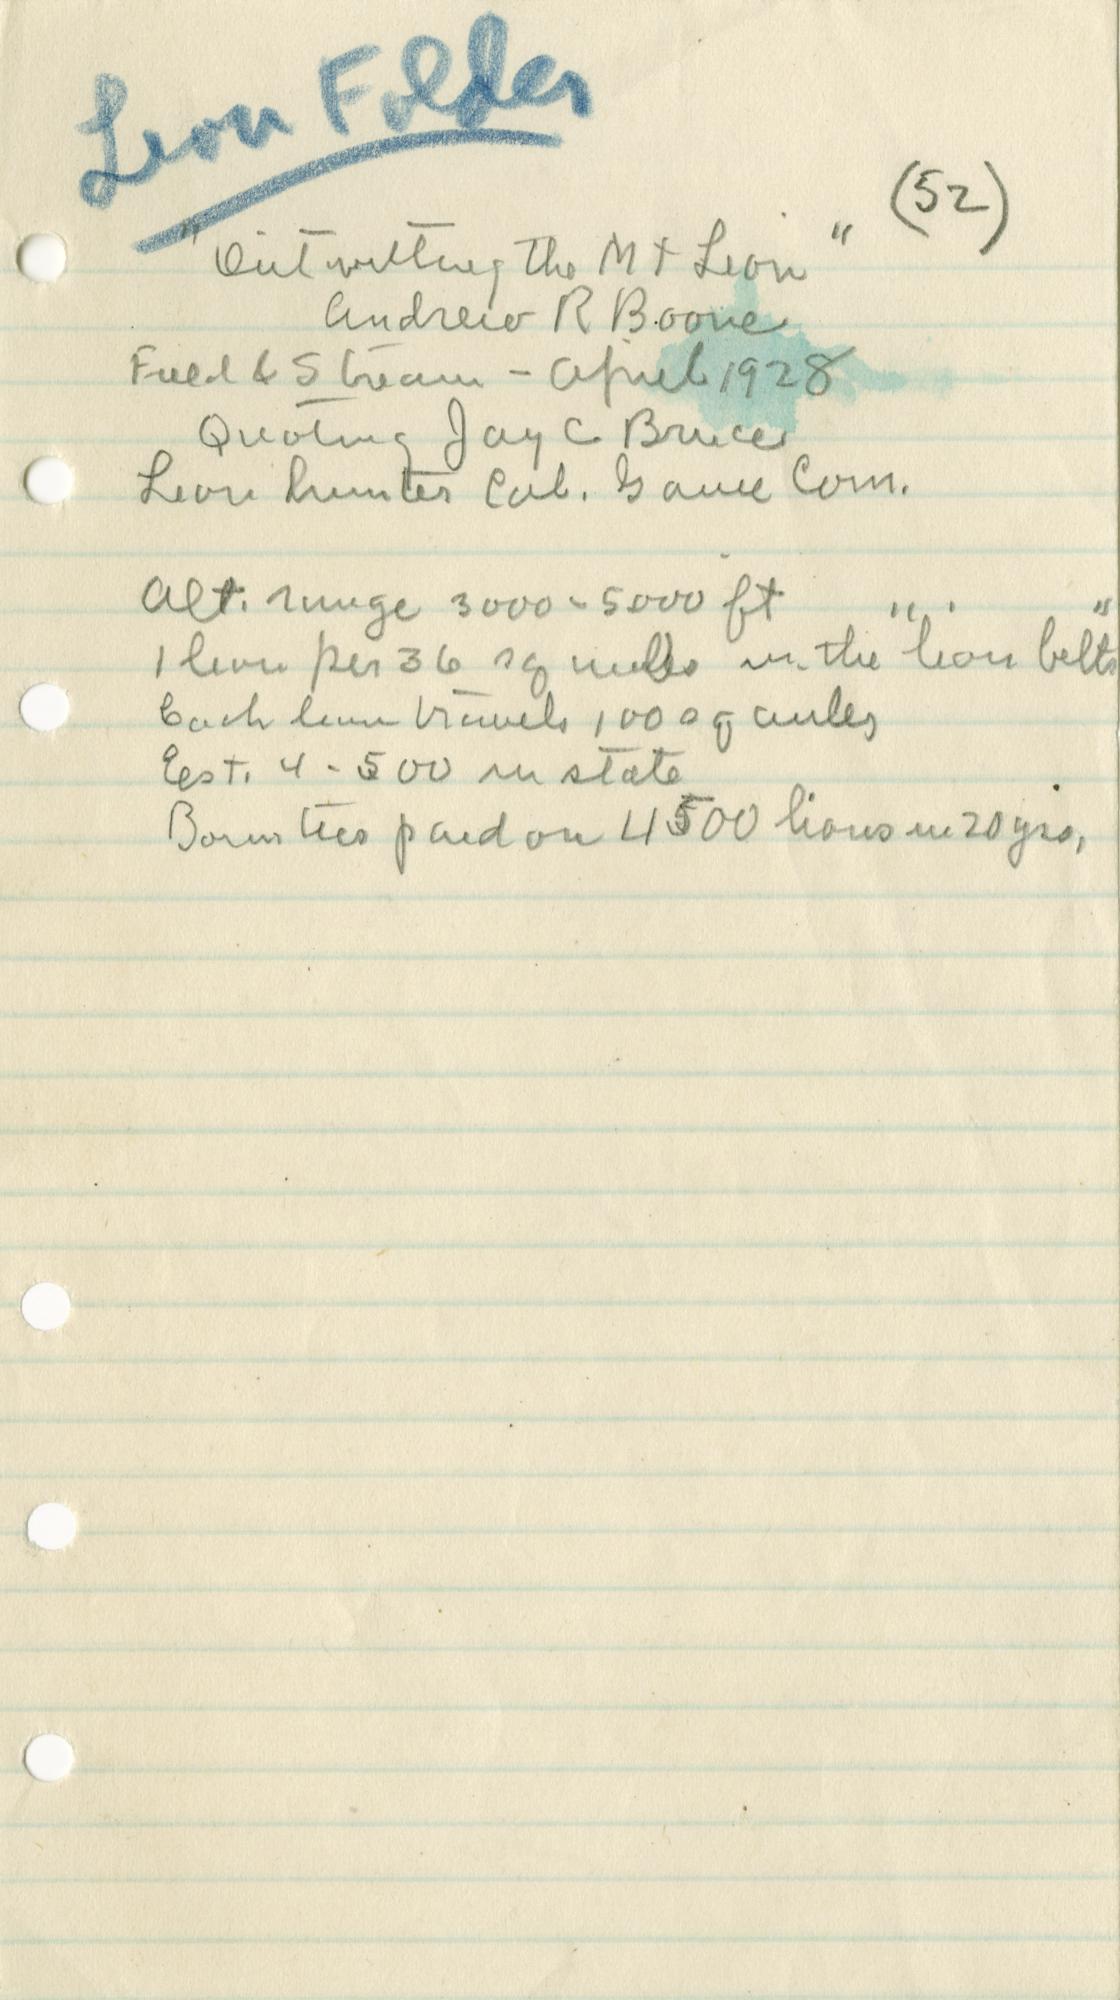 Lion Folder
(52)
"Outwitting the Mt Lion"
Andrew R Boone
Field & Stream - April 1928
Quoting Jay C Bruce
Lion hunter Cal. Game Com.
Alt. range 3000-5000 ft
1 lion per 36 sq miles in the "lion belts"
Each lion travels 100 sq miles
Est. 4-500 in state
Bounties paid on 4500 lions in 20 yrs.